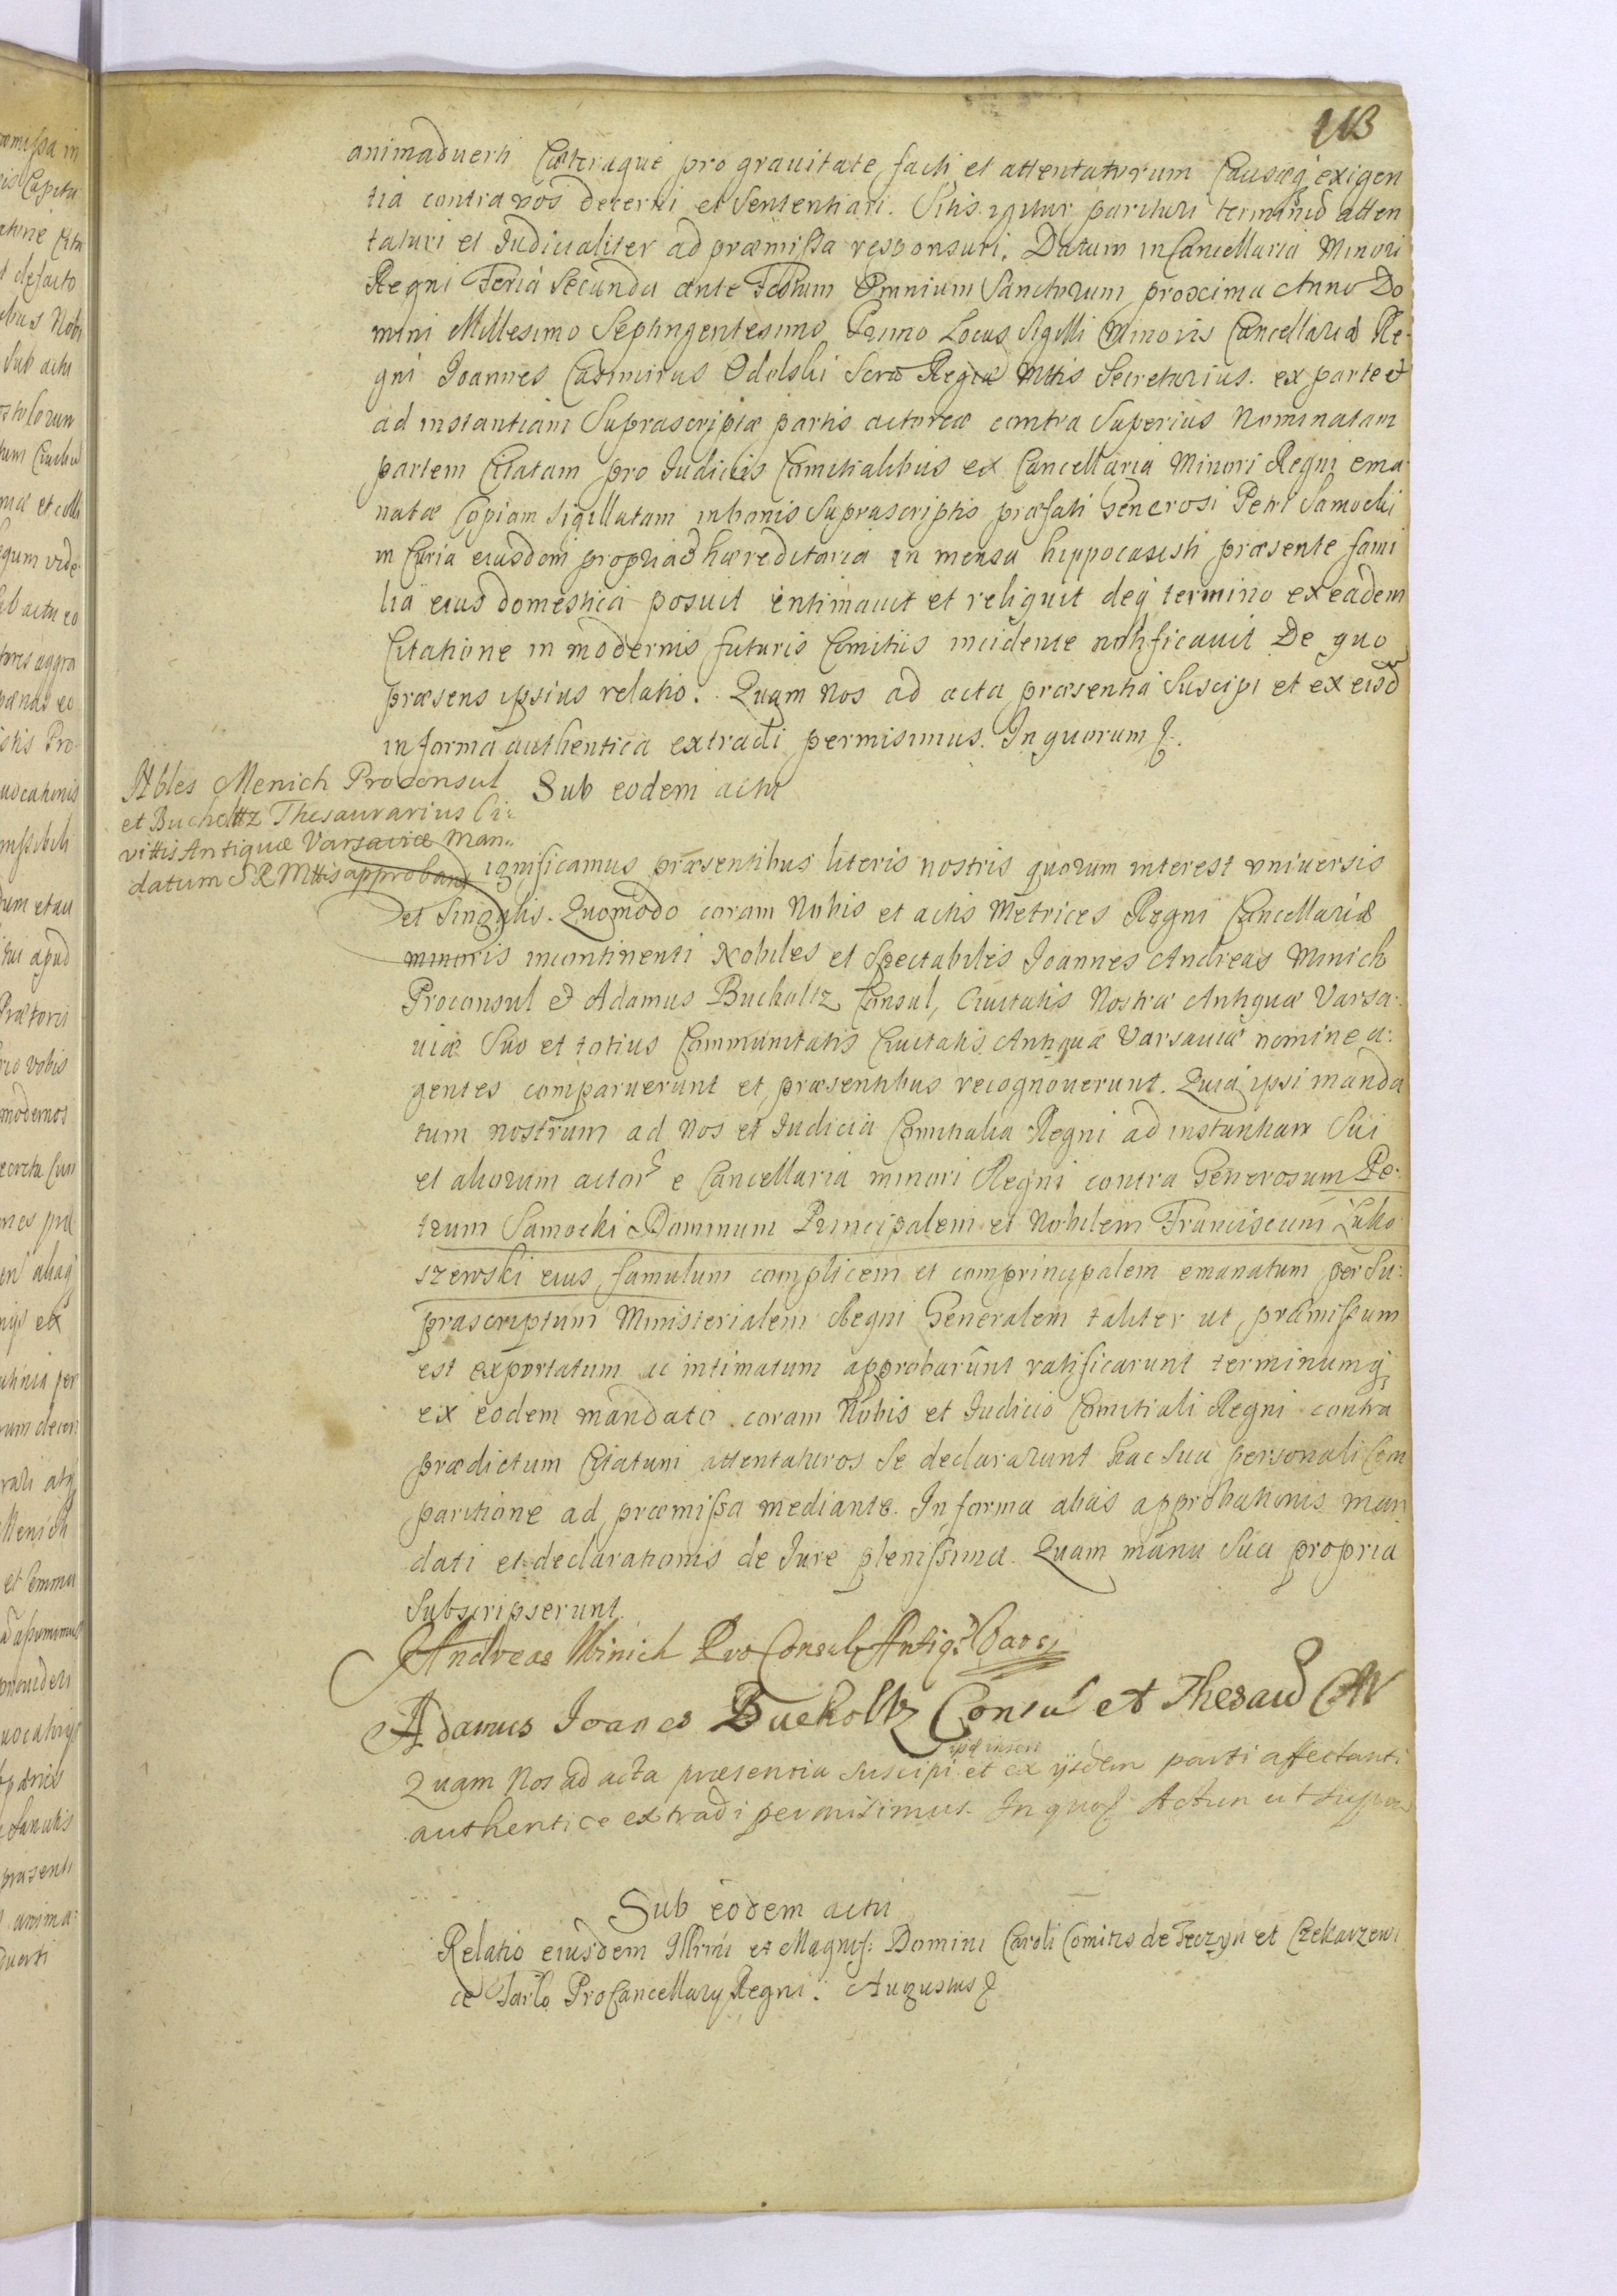 113
animaduerti Cæteraque pro grauitate facti et attentatorum Causæq exigen
tia contra vos decerni et Sententiari. Sitis igitur parituri terminũ atten
taturi et Iudicialiter ad præmissa responsuri. Datum in Cancellaria Minori
Regni Feria Secunda ante Festum Omnium Sanctorum proxima Anno Do
mini Millesimo Septingentesimo Primo Locus Sigilli Minoris Cancellariæ Re-
gni Ioannes Casimirus Odolski Scræ Regiæ Mttis Secretarius. ex parte et
ad instantiam Suprascriptæ partis actoreæ contra Superius Nominatam
partem Citatam pro Iudiciis Comitialibus ex Cancellaria Minori Regni ema
natæ Copiam sigillatam in bonis Suprascriptis præfati Generosi Petri Samocki
in Curia eiusdem propria hæreditaria in mensa hippocausti præsente fami
lia eius domestica posuit intimauit et reliquit deq termino ex eadem
Citatione in modernis futuris Comitiis incidente notificauit De quo
præsens ipsius relatio. Quam Nos ad acta præsentia Suscipi et ex eisd
in forma authentica extradi permisimus. In quorum &.
Nbles Menich Proconsul
et Bucholtz Thesaurarius Ci:
vittis Antiquæ Varsaviæ Man:
datum S R Mttis approbant
Sub eodem actu
ignificamus præsentibus literis nostris quorum interest vniversis
et Singulis. Quomodo coram Nobis et actis Metrices Regni Cancellariæ
minoris incontinenti Nobiles et Spectabiles Ioannes Andreas Minich
Proconsul et Adamus Bucholtz Consul, Ciuitatis Nostræ Antiquæ Varsa-
uiæ Suo et totius Communitatis Ciuitatis Antiquæ Varsauiæ nomine a:
gentes comparuerunt et præsentibus recognouerunt. Quia ipsi manda
tum nostrum ad Nos et Iudicia Comitialia Regni ad instantiam Sui
et aliorum actor e Cancellaria minori Regni contra Generosum Pe-
trum Samocki Dominum Principalem et Nobilem Franciscum Luko
szewski eius famulum complicem et comprincipalem emanatum per Su:
prascriptum Ministerialem Regni Generalem taliter ut præmissum
est exportatum ac intimatum approbarunt ratificarunt terminumq
ex eodem mandato coram Nobis et Iudicio Comitiali Regni contra
prædictum Citatum attentaturos Se declararunt hac Sua personali Com
paritione ad præmissa mediante. In forma alias approbationis man
dati et declarationis de Iure plenissima. Quam manu Sua propria
Subscripserunt.
Andreas Minich Pro Consul Antiq Vars
Adamus Joanes Bucholtz Consul et Thesaur
Quam Nos ad acta præsentia suscipi et ex ijsdem parti affectanti
authentice extradi permisimus. In quor Actum ut supra
Sub eodem actu
Relatio eiusdem Illrmi et Magnif: Domini Caroli Comitis de Teczyn et Czekarzewi
ce Tarlo ProCancellary Regni. Augustus &